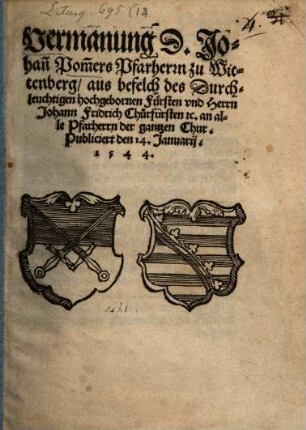 Liturg 695 (12
4.
Vermanung D. Jo-
han̄ Pom̄ers Pfarherrn zu Wit-
tenberg/ aus befelch des Durch-
leuchtigen hochgebornen Fürsten vnd Herrn
Johann Fridrich Chürfürsten ꝛc. an al-
le Pfarherrn der gantzen Chur.
Publiciert den 14. Januarij.
1 5 4 4.